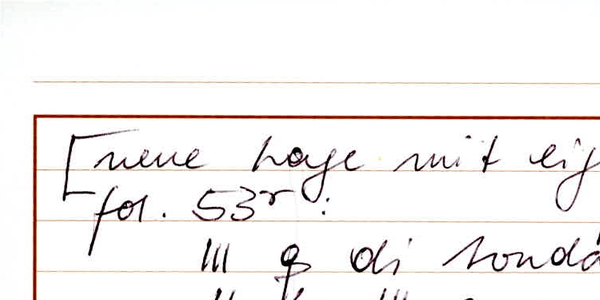 [neue Lage mit eig
fol. 53r :
III q di